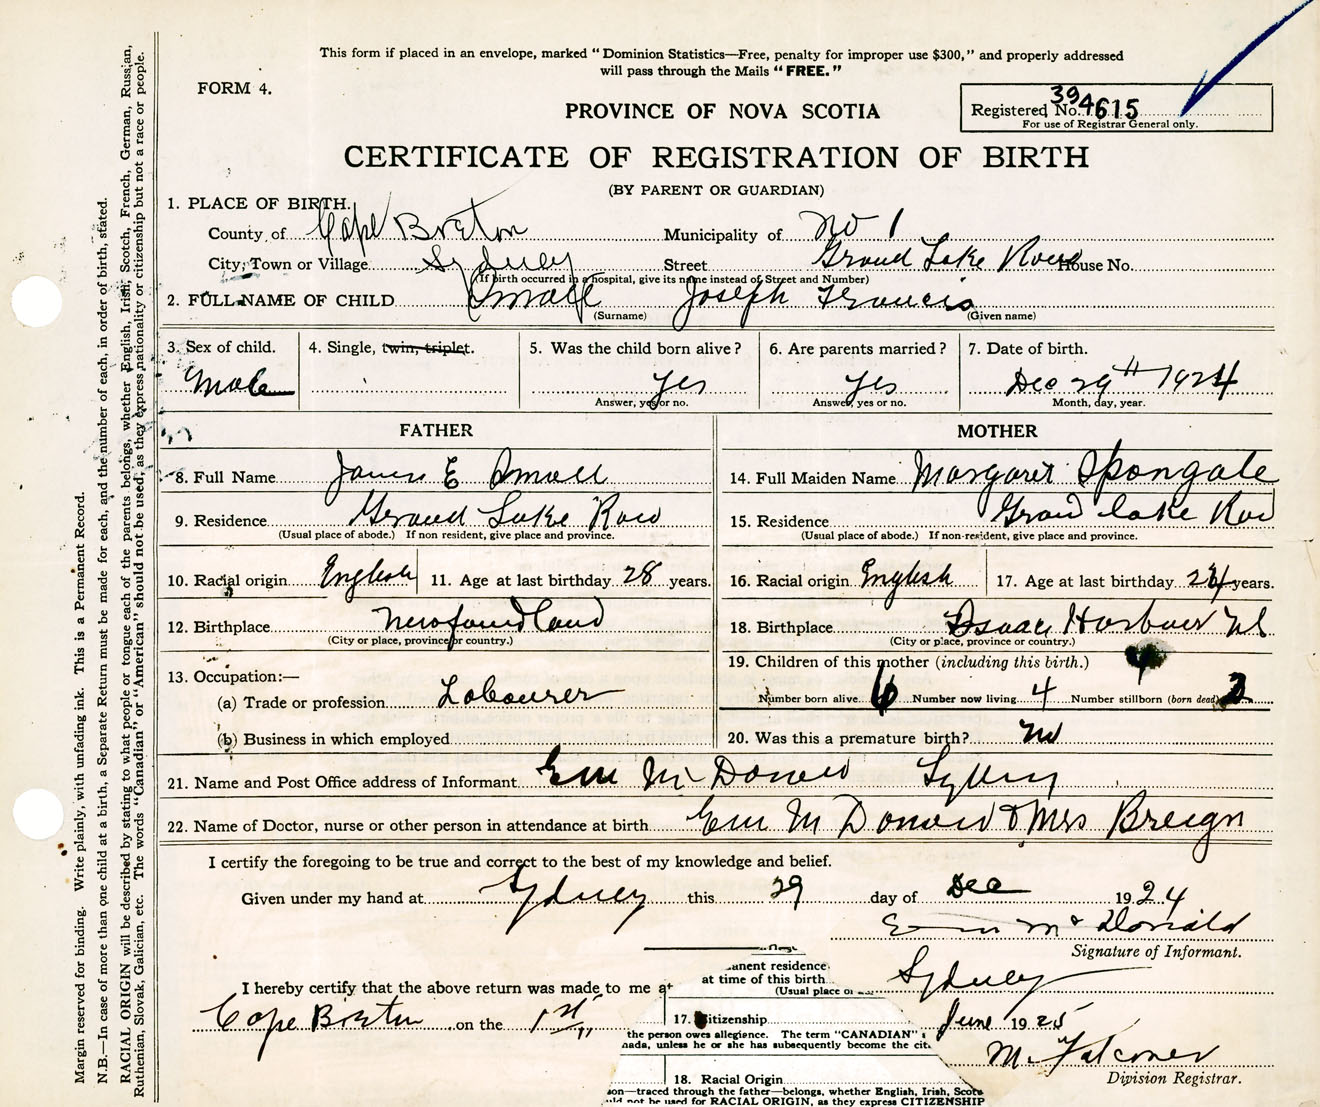 This form if placed in an envelope, marked "Dominion Statistics—Free, penalty for improper use $300," and properly addressed
will pass through the Mails "FREE."
FORM 4.
PROVINCE OF NOVA SCOTIA
Registered No. 394615
For use of Registrar General only.
CERTIFICATE OF REGISTRATION OF BIRTH
(BY PARENT OR GUARDIAN)
1. PLACE OF BIRTH.
County of Cape Breton Municipality of No 1
City, Town or Village Sydney Street Grand Lake Road House No.
(If birth occurred in a hospital, give its name instead of Street and Number)
2. FULL NAME OF CHILD Small Joseph Francis
(Surname) (Given name)
3. Sex of child. 4. Single, twin, triplet. 5. Was the child born alive? 6. Are parents married? 7. Date of birth.
Male Yes Yes Dec 29th 1924
Answer, yes or no. Answer, yes or no. Month, day, year.
FATHER MOTHER
8. Full Name James E Small 14. Full Maiden Name Margaret
9. Residence Grand Lake Road 15. Residence Grand Lake Road
(Usual place of abode.) If non resident, give place and province. (Usual place of abode.) If non-resident, give place and province.
10. Racial origin English 11. Age at last birthday 28 years. 16. Racial origin English 17. Age at last birthday 24 years.
12. Birthplace Newfoundland 18. Birthplace Isaac Harbour
(City or place, province or country.) (City or place, province or country.)
13. Occupation:— 19. Children of this mother (including this birth.)
(a) Trade or profession Labourer Number born alive 6 Number now living 4 Number stillborn (born dead) 2
(b) Business in which employed 20. Was this a premature birth? No
21. Name and Post Office address of Informant Em McDonald Sydney
22. Name of Doctor, nurse or other person in attendance at birth Em McDonald & Mrs
I certify the foregoing to be true and correct to the best of my knowledge and belief.
Given under my hand at Sydney this 29 day of Dec 1924
Em McDonald
Signature of Informant.
I hereby certify that the above return was made to me at Sydney
Cape Breton on the 1st June 1925
M. Falconer
Division Registrar.
anent residence
at time of this birth
(Usual place o
17. Citizenship
the person owes allegiance. The term "CANADIAN" i
nada, unless he or she has subsequently become the cit
18. Racial Origin
son—traced through the father—belongs, whether English, Irish, Scots
uld not be used for RACIAL ORIGIN, as they express CITIZENSHIP
Margin reserved for binding. Write plainly, with unfading ink. This is a Permanent Record.
N.B.—In case of more than one child at a birth, a Separate Return must be made for each, and the number of each, in order of birth, stated.
RACIAL ORIGIN will be described by stating to what people or tongue each of the parents belongs, whether English, Irish, Scotch, French, German, Russian,
Ruthenian, Slovak, Galician, etc. The words "Canadian" or "American" should not be used; as they express nationality or citizenship but not a race or people.